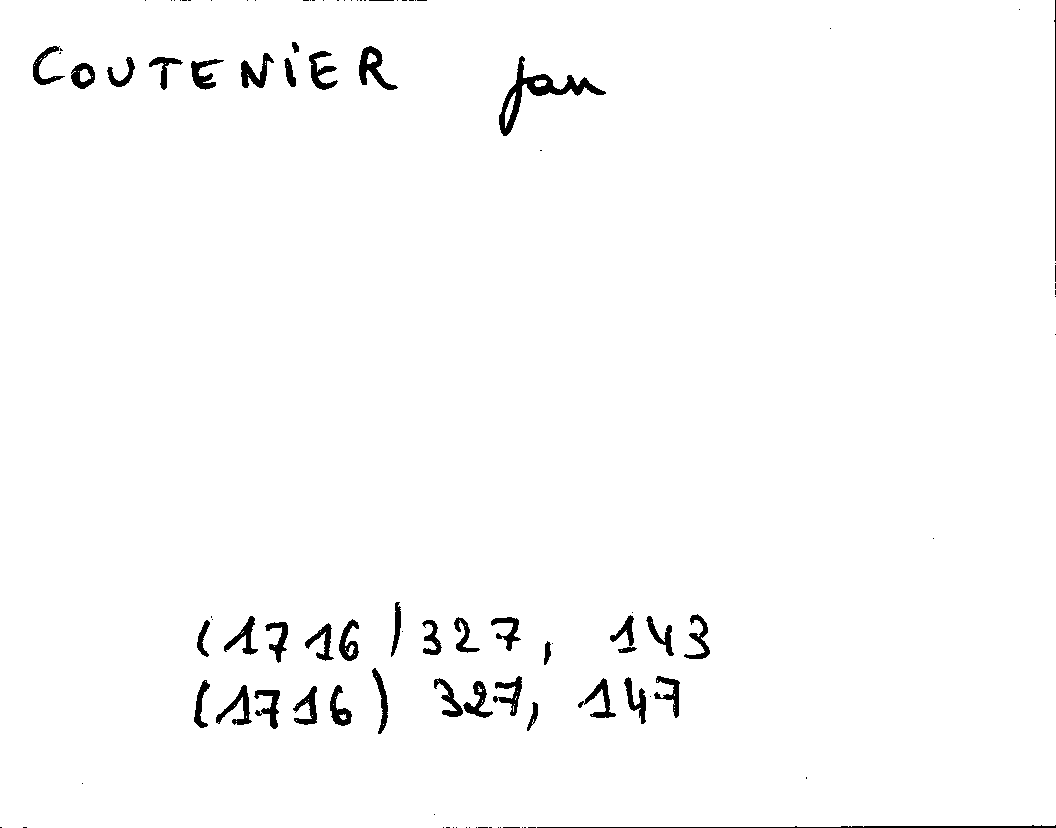 COUTENIER Jan
(1716) 327, 143
(1716) 327, 147